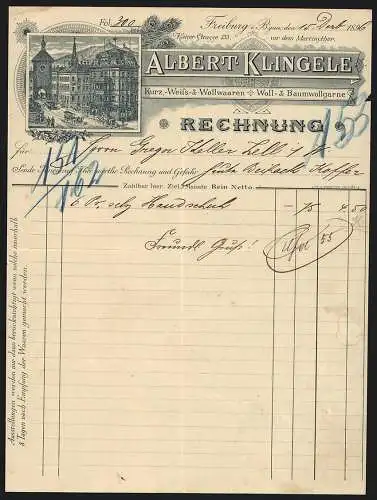 Fol. 300
Freiburg i. Bgau, den 15 Dezb. 1896
Kaiser-Strasse 133 vor dem Martinsthor.
ALBERT KLINGELE
Kurz-, Weiß- & Wollwaaren Woll- & Baumwollgarne
RECHNUNG
153
151
für Herrn Gregor Keller Zell i/W
162
Sende Ihnen auf Ihre werthe Rechnung und Gefahr
Zahlbar hier. Ziel 3 Monate Rein Netto.
6 Pr Handschuh — 75 4.50
Freundl Gruß!
Ausstellungen werden nur dann berücksichtigt wenn solche innerhalb
8 Tagen nach Empfang der Waaren gemacht werden.